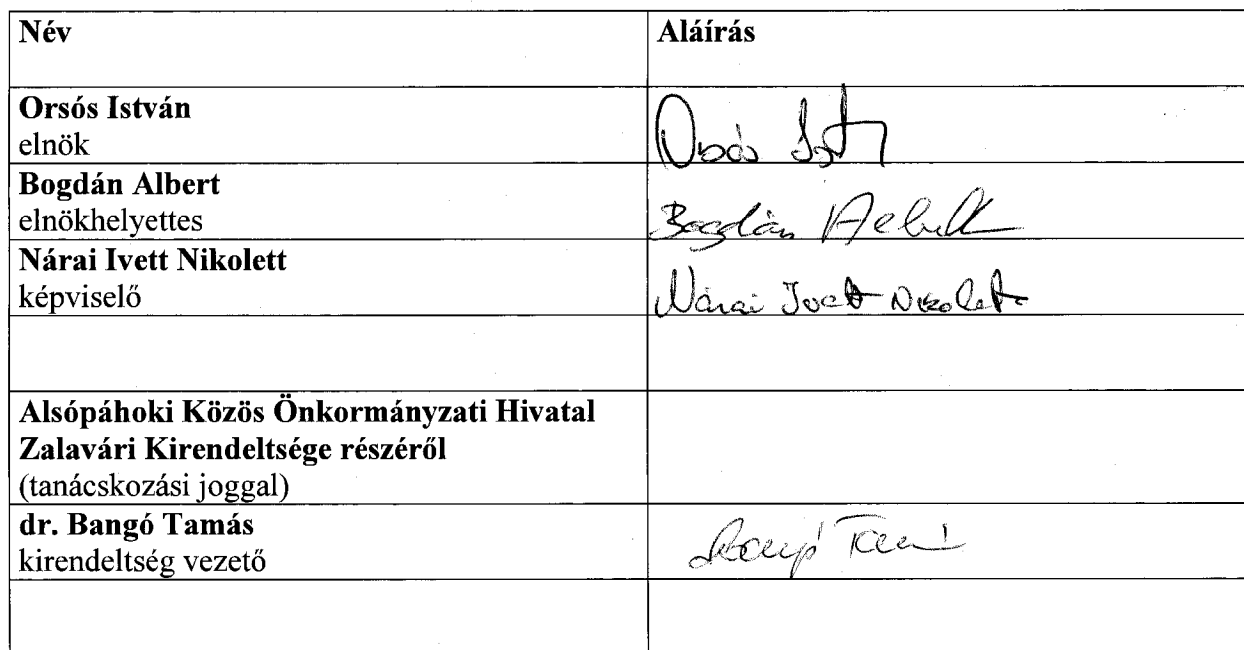 Név Aláírás
Orsós István
elnök
Orsós István
Bogdán Albert
elnökhelyettes
Bogdán Albert
Nárai Ivett Nikolett
képviselő
Nárai Ivett Nikolett
Alsópáhoki Közös Önkormányzati Hivatal
Zalavári Kirendeltsége részéről
(tanácskozási joggal)
dr. Bangó Tamás
kirendeltség vezető